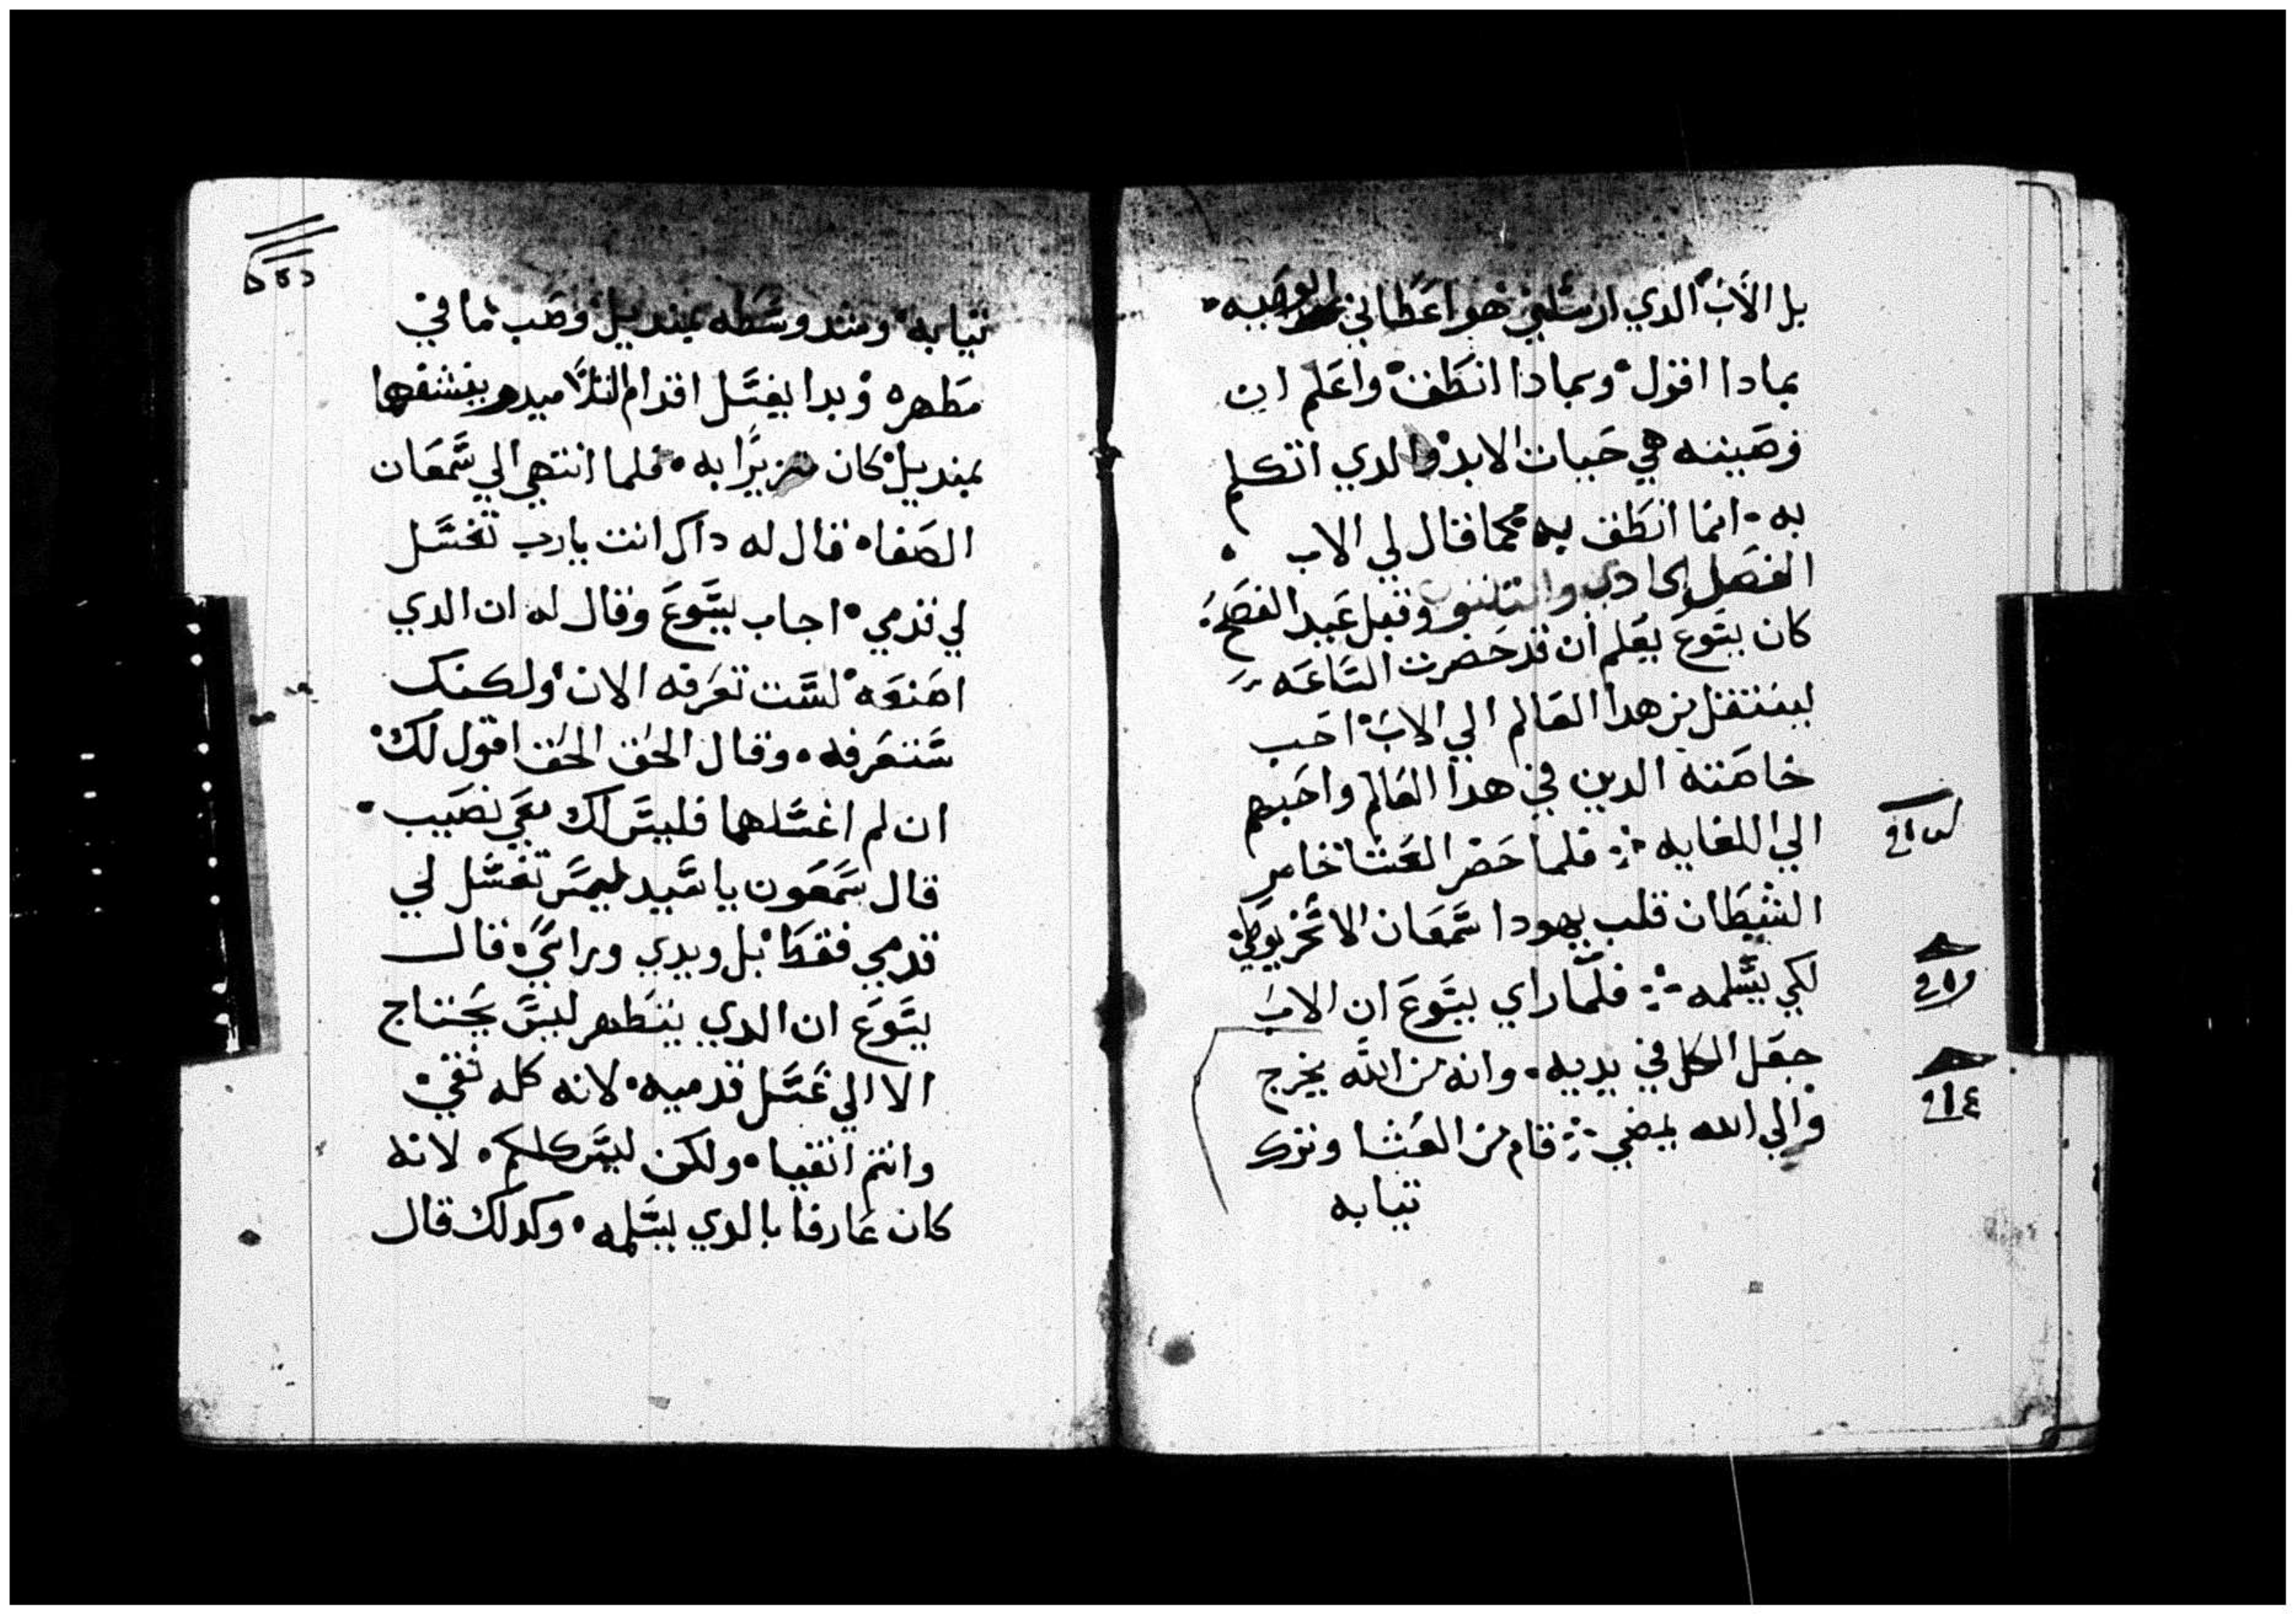 بل الاب الدي ارسلني هو اعطاني الوصيه
بمادا اقول وبمادا انطق واعلم ان
وصيته هي حيات الابد والدي اتكلم
به انما انطق به كما قال لي الاب
الفصل الحادي والتلتون وقبل عيد الفصح
كان يسوع يعلم ان قد حضرت الساعه
لينتقل من هدا العالم الي الاب احب
خاصته الدين في هدا العالم واحبهم
الي الغايه فلما حضر العشا خامر
الشيطان قلب يهودا سمعان الاسخريوطي
لكي يسلمه فلما راي يسوع ان الاب
جعل الكل في يديه وانه من الله يخرج
والي الله يمضي قام من العشا وترك
تيابه
تيابه وشد وسطه بمنديل وصب ما في
مطهره وبدا يغسل اقدام التلاميد وينشفها
بمنديل كان متزيرا به فلما انتهي الي سمعان
الصفا قال له داك انت يارب تغسل
لي قدمي اجاب يسوع وقال له ان الدي
اصنعه لست تعرفه الان ولكنك
ستعرفه وقال الحق الحق اقول لك
ان لم اغسلهما فليس لك معي نصيب
قال سمعون يا سيد ليس تغسل لي
قدمي فقط بل ويدي وراسي قال
يسوع ان الدي يتطهر ليس يحتاج
الا الي غسل قدميه لانه كله نقي
وانتم انقيا ولكن ليس كلكم لانه
كان عارفا بالدي يسلمه وكدلك قال